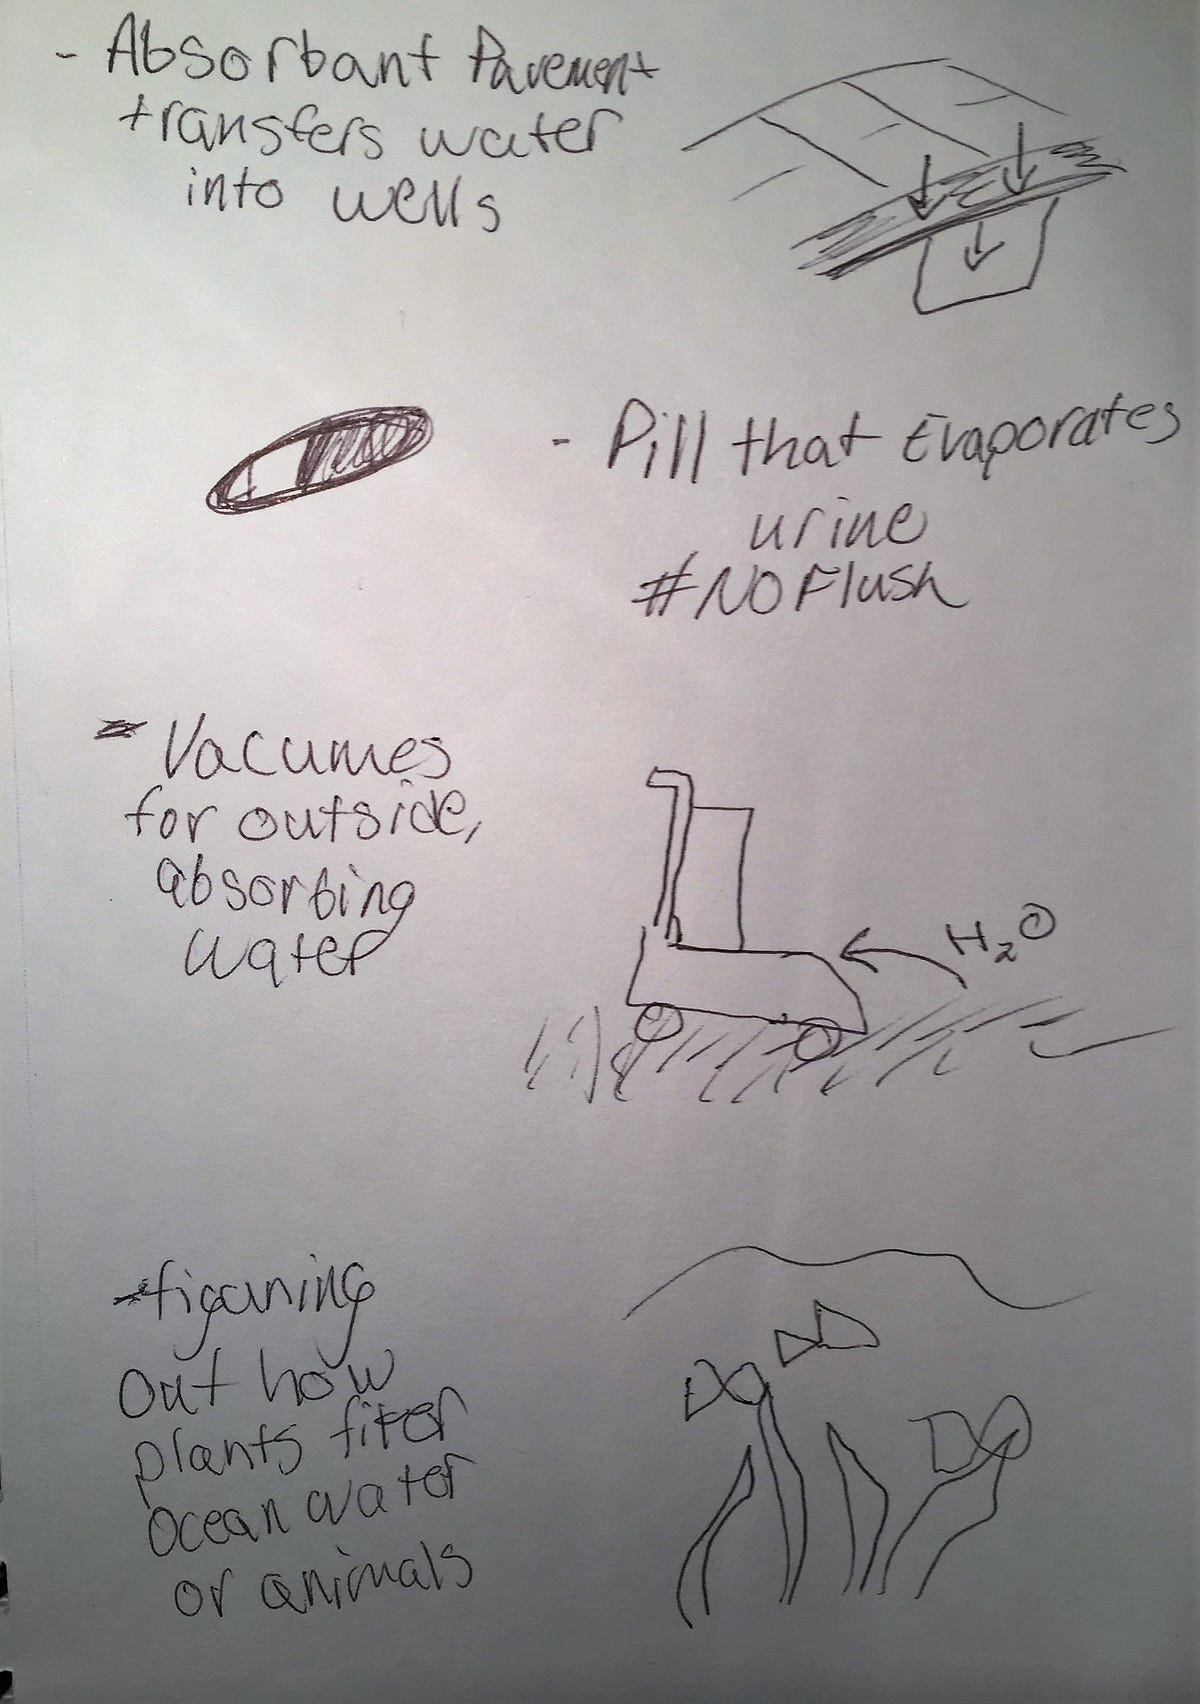 - Absorbant Pavement
transfers water
into wells
- Pill that Evaporates
urine
#NO Flush
- Vacumes
for outside,
absorbing
water
H₂O
- figuring
out how
plants fiter
ocean water
or animals